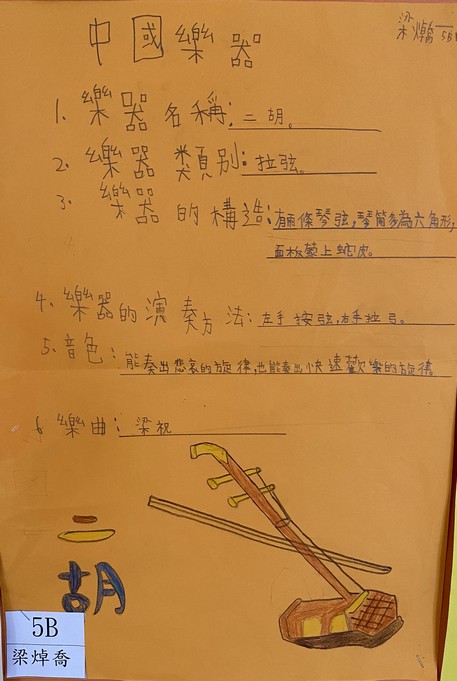 中國樂器
梁焯喬 5B
1. 樂器名稱:二胡。
2. 樂器類別:拉弦。
3. 樂器的構造:有兩條琴弦,琴筒多為六角形,
面板蒙上蛇皮。
4. 樂器的演奏方法:左手按弦,右手拉弓。
5. 音色:能奏出悲哀的旋律,也能奏出快速歡樂的旋律
6 樂曲:梁祝
二
胡
5B
梁焯喬